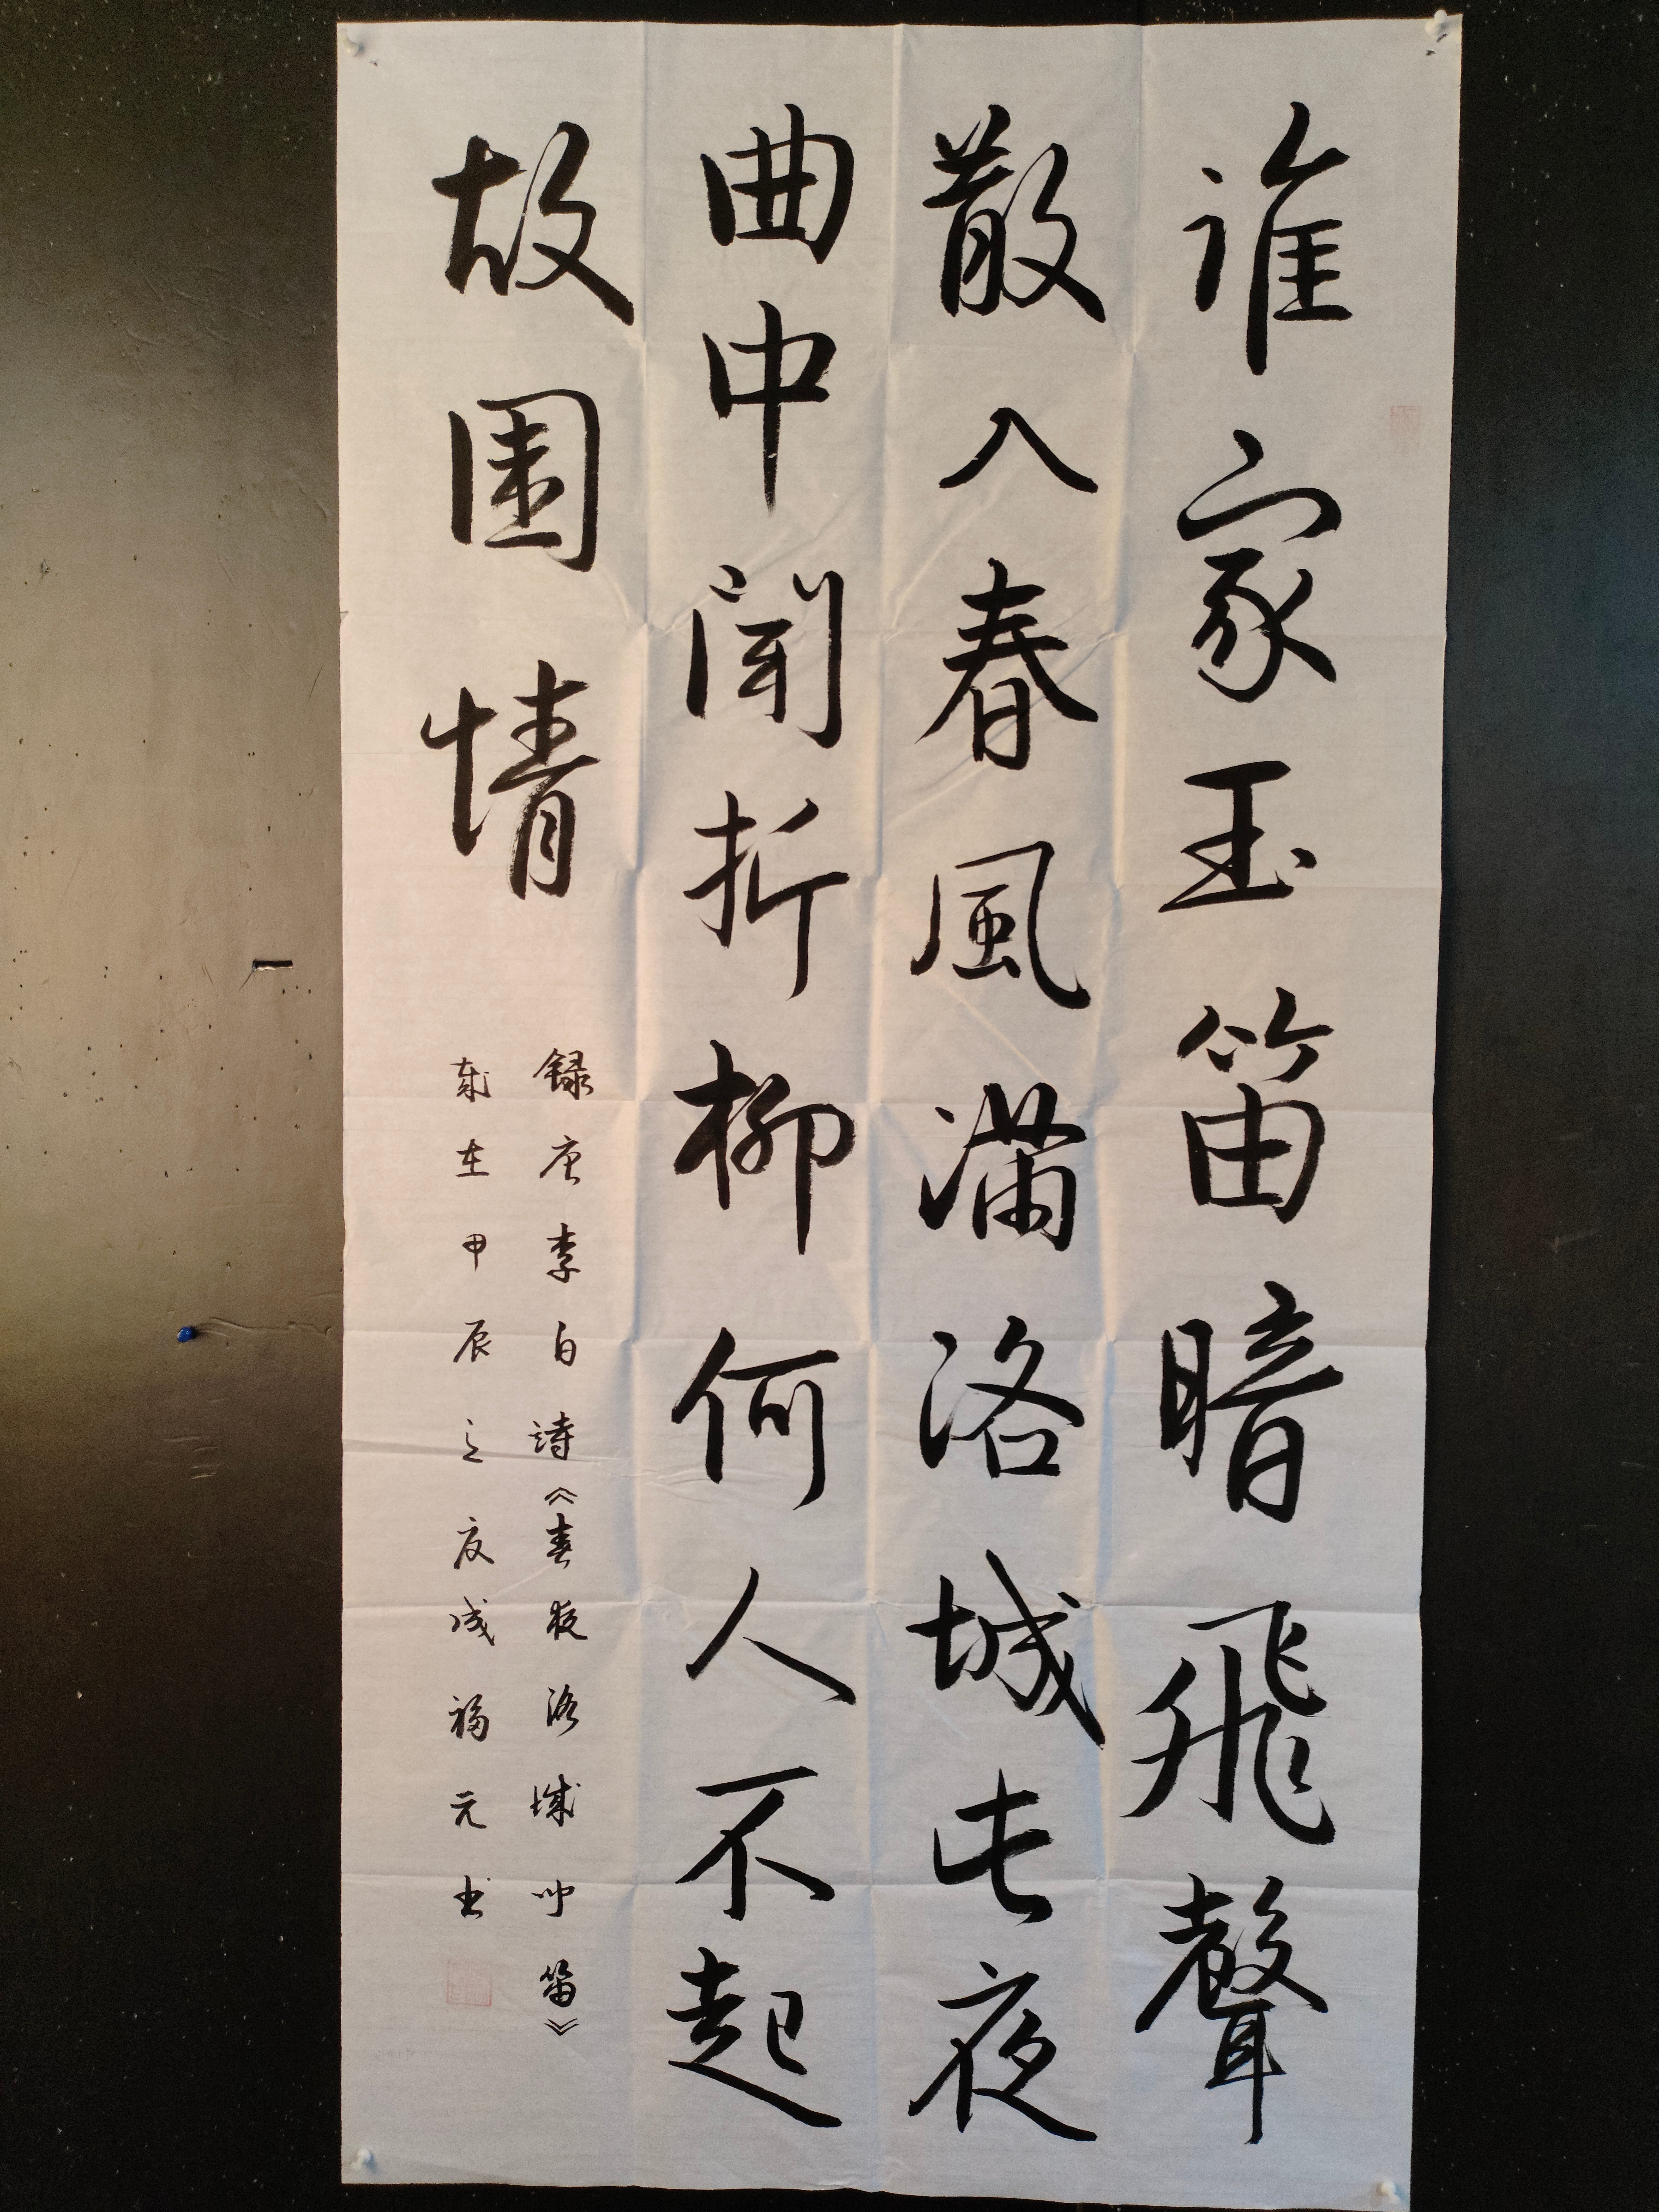 誰家玉笛暗飛聲
散入春風滿洛城此夜
曲中聞折柳何人不起
故園情
録唐李白詩《春夜洛城聞笛》
歲在甲辰之夏成福元书